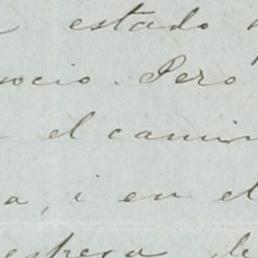 estado
ocio. Pero
el camin
a, i en el
espresa de